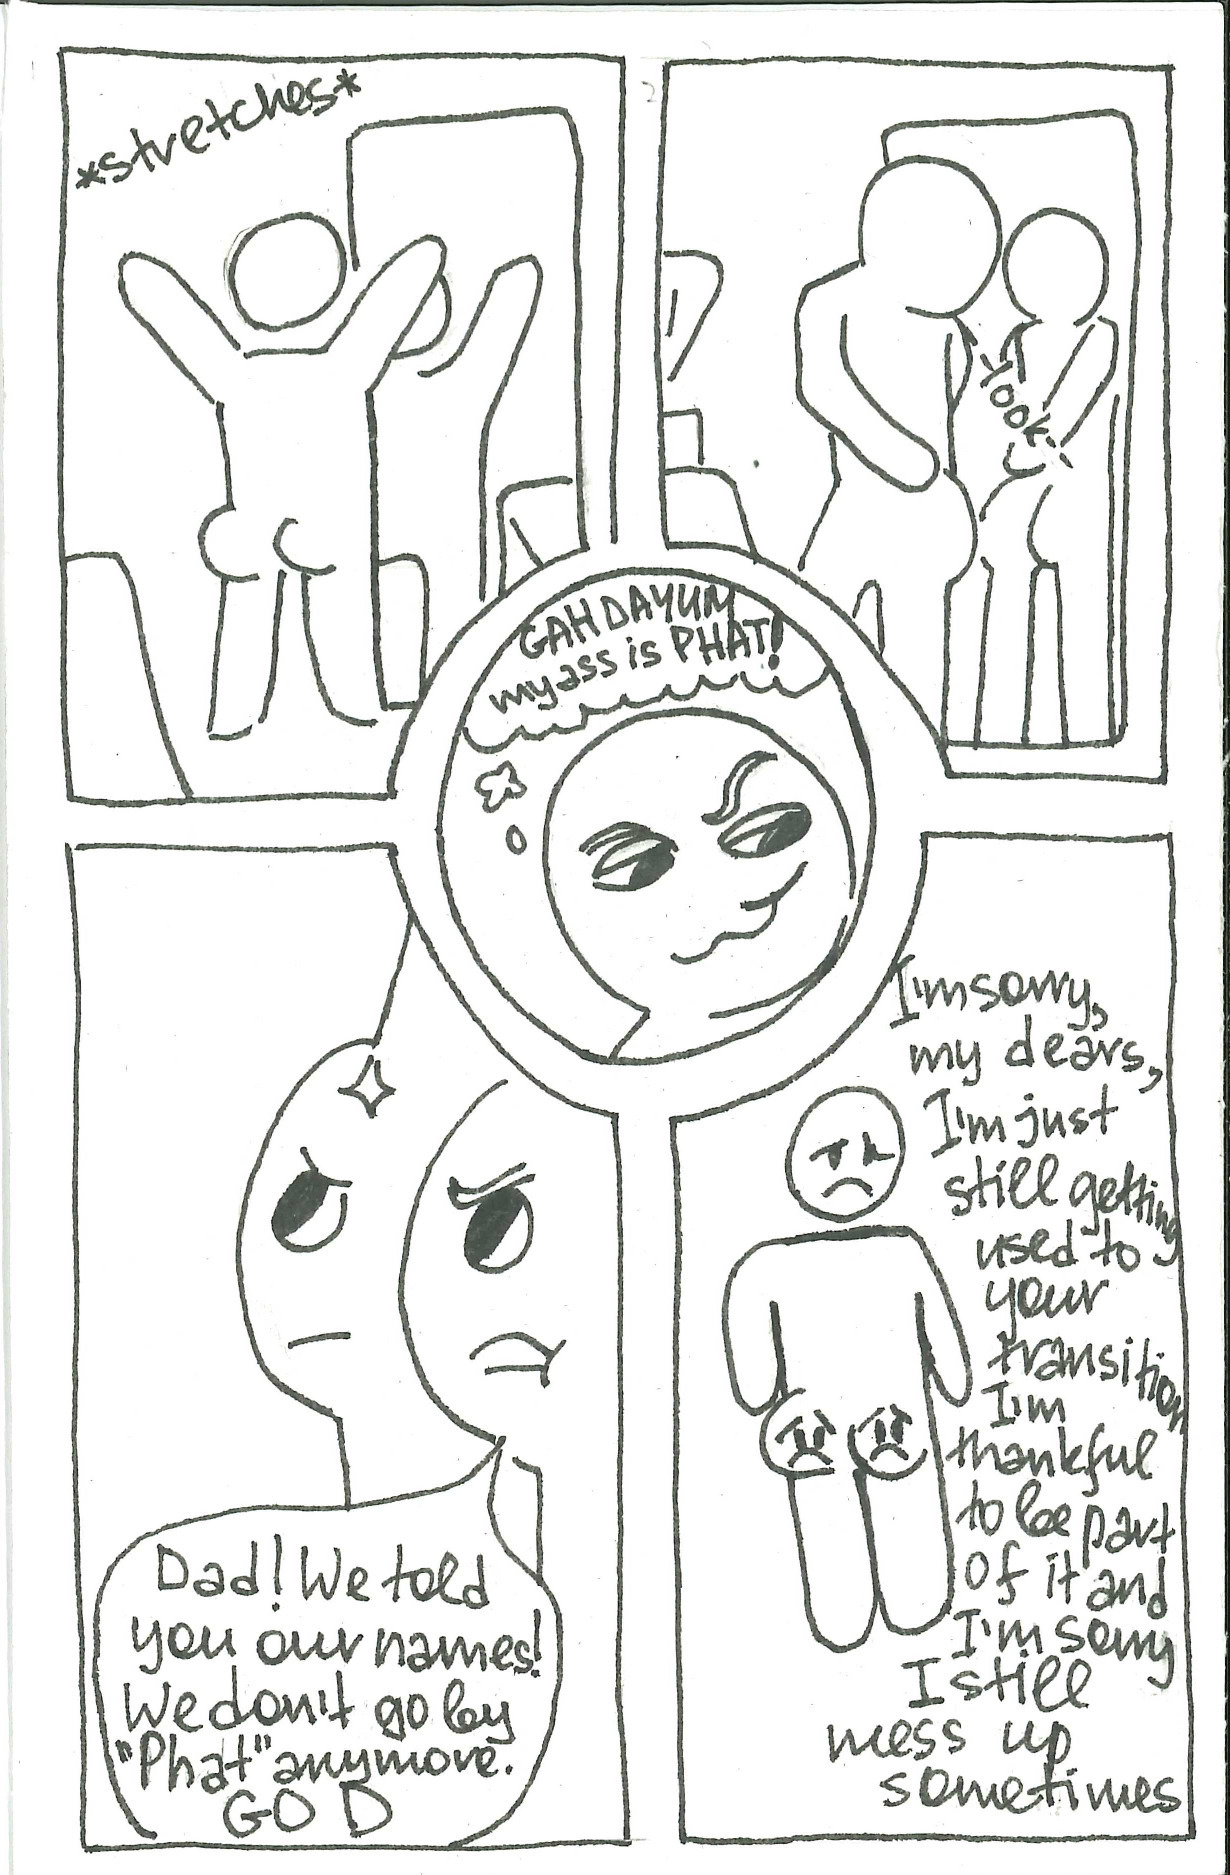 *stretches*
*look*
GAH DAYUM
my ass is PHAT!
Dad! We told
you our names!
We don't go by
"Phat" anymore.
GOD
I'm sorry,
my dears,
I'm just
still getting
used to
your
transition
I'm
thankful
to be part
of it and
I'm sorry
I still
mess up
sometimes